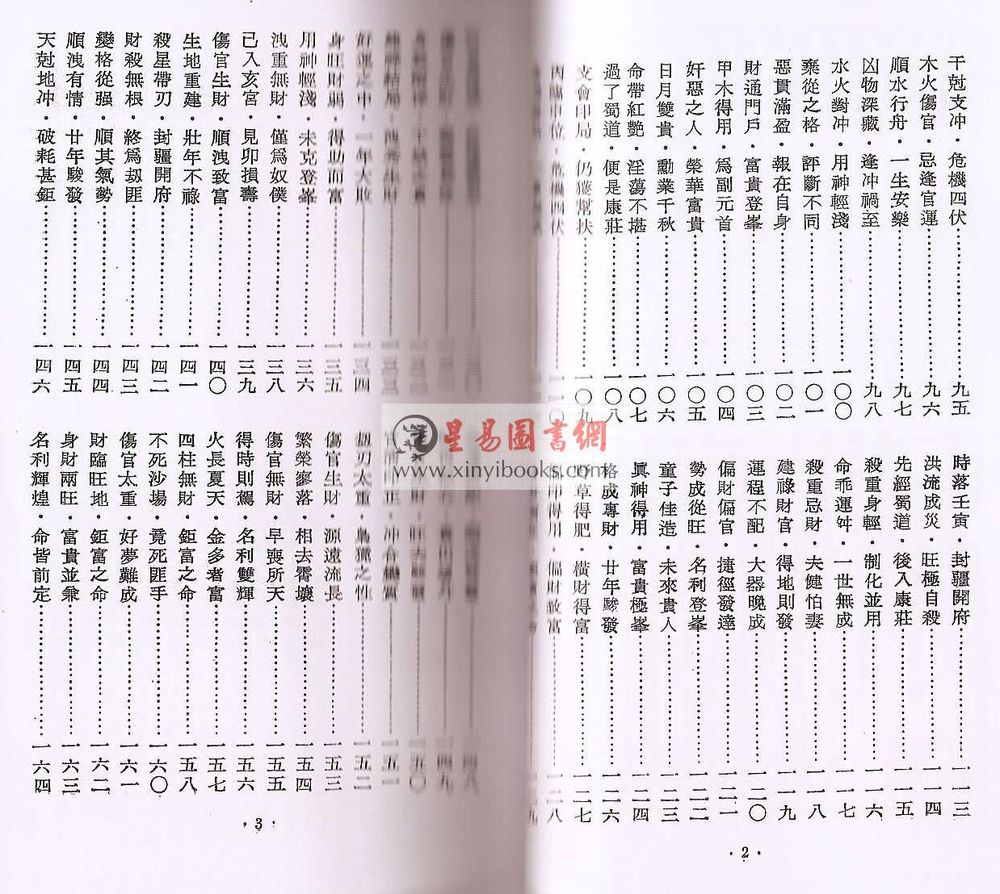 干尅支冲・危機四伏……九五
木火傷官・忌逢官運……九六
順水行舟・一生安樂……九七
凶物深藏・逢冲禍至……九八
水火對冲・用神輕淺……一〇〇
棄從之格・評斷不同……一〇一
惡貫滿盈・報在自身……一〇二
財通門戶・富貴登峯……一〇三
甲木得用・爲副元首……一〇四
奸惡之人・榮華富貴……一〇五
日月雙貴・勳業千秋……一〇六
命帶紅艷・淫蕩不堪……一〇七
過了蜀道・便是康莊……一〇八
支會印局・仍獲幫扶……一〇九
丙臨申位・危機四伏……一一〇
時落壬寅・封疆開府……一一三
洪流成災・旺極自殺……一一四
先經蜀道・後入康莊……一一五
殺重身輕・制化並用……一一六
命乖運舛・一世無成……一一七
殺重忌財・夫健怕妻……一一八
建祿財官・得地則發……一一九
運程不配・大器晚成……一二〇
偏財偏官・捷徑發達……一二一
勢成從旺・名利登峯……一二二
童子佳造・未來貴人……一二三
眞神得用・富貴極峯……一二四
格成專財・廿年驂發……一二六
草得肥・橫財得富……一二七
印得用・偏財致富……一二八
・2・
好運之中・一年大敗……一三四
身旺財弱・得助而富……一三五
用神輕淺・未克登峰……一三六
洩重無財・僅爲奴僕……一三八
己入亥宮・見卯損壽……一三九
傷官生財・順洩致富……一四〇
生地重建・壯年不祿……一四一
殺星帶刃・封疆開府……一四二
財殺無根・終爲刼匪……一四三
變格從强・順其氣勢……一四四
順洩有情・廿年駿發……一四五
天尅地冲・破耗甚鉅……一四六
一四八
一四九
一五〇
冲合……一五一
刼刃太重・梟獍之性……一五二
傷官生財・源遠流長……一五三
繁榮寥落・相去霄壤……一五四
傷官無財・早喪所天……一五五
得時則駕・名利雙輝……一五六
火長夏天・金多者富……一五七
四柱無財・鉅富之命……一五八
不死沙場・竟死匪手……一六〇
傷官太重・好夢難成……一六一
財臨旺地・鉅富之命……一六二
身財兩旺・富貴並兼……一六三
名利輝煌・命皆前定……一六四
・3・
星易圖書網
www.xinyibooks.com